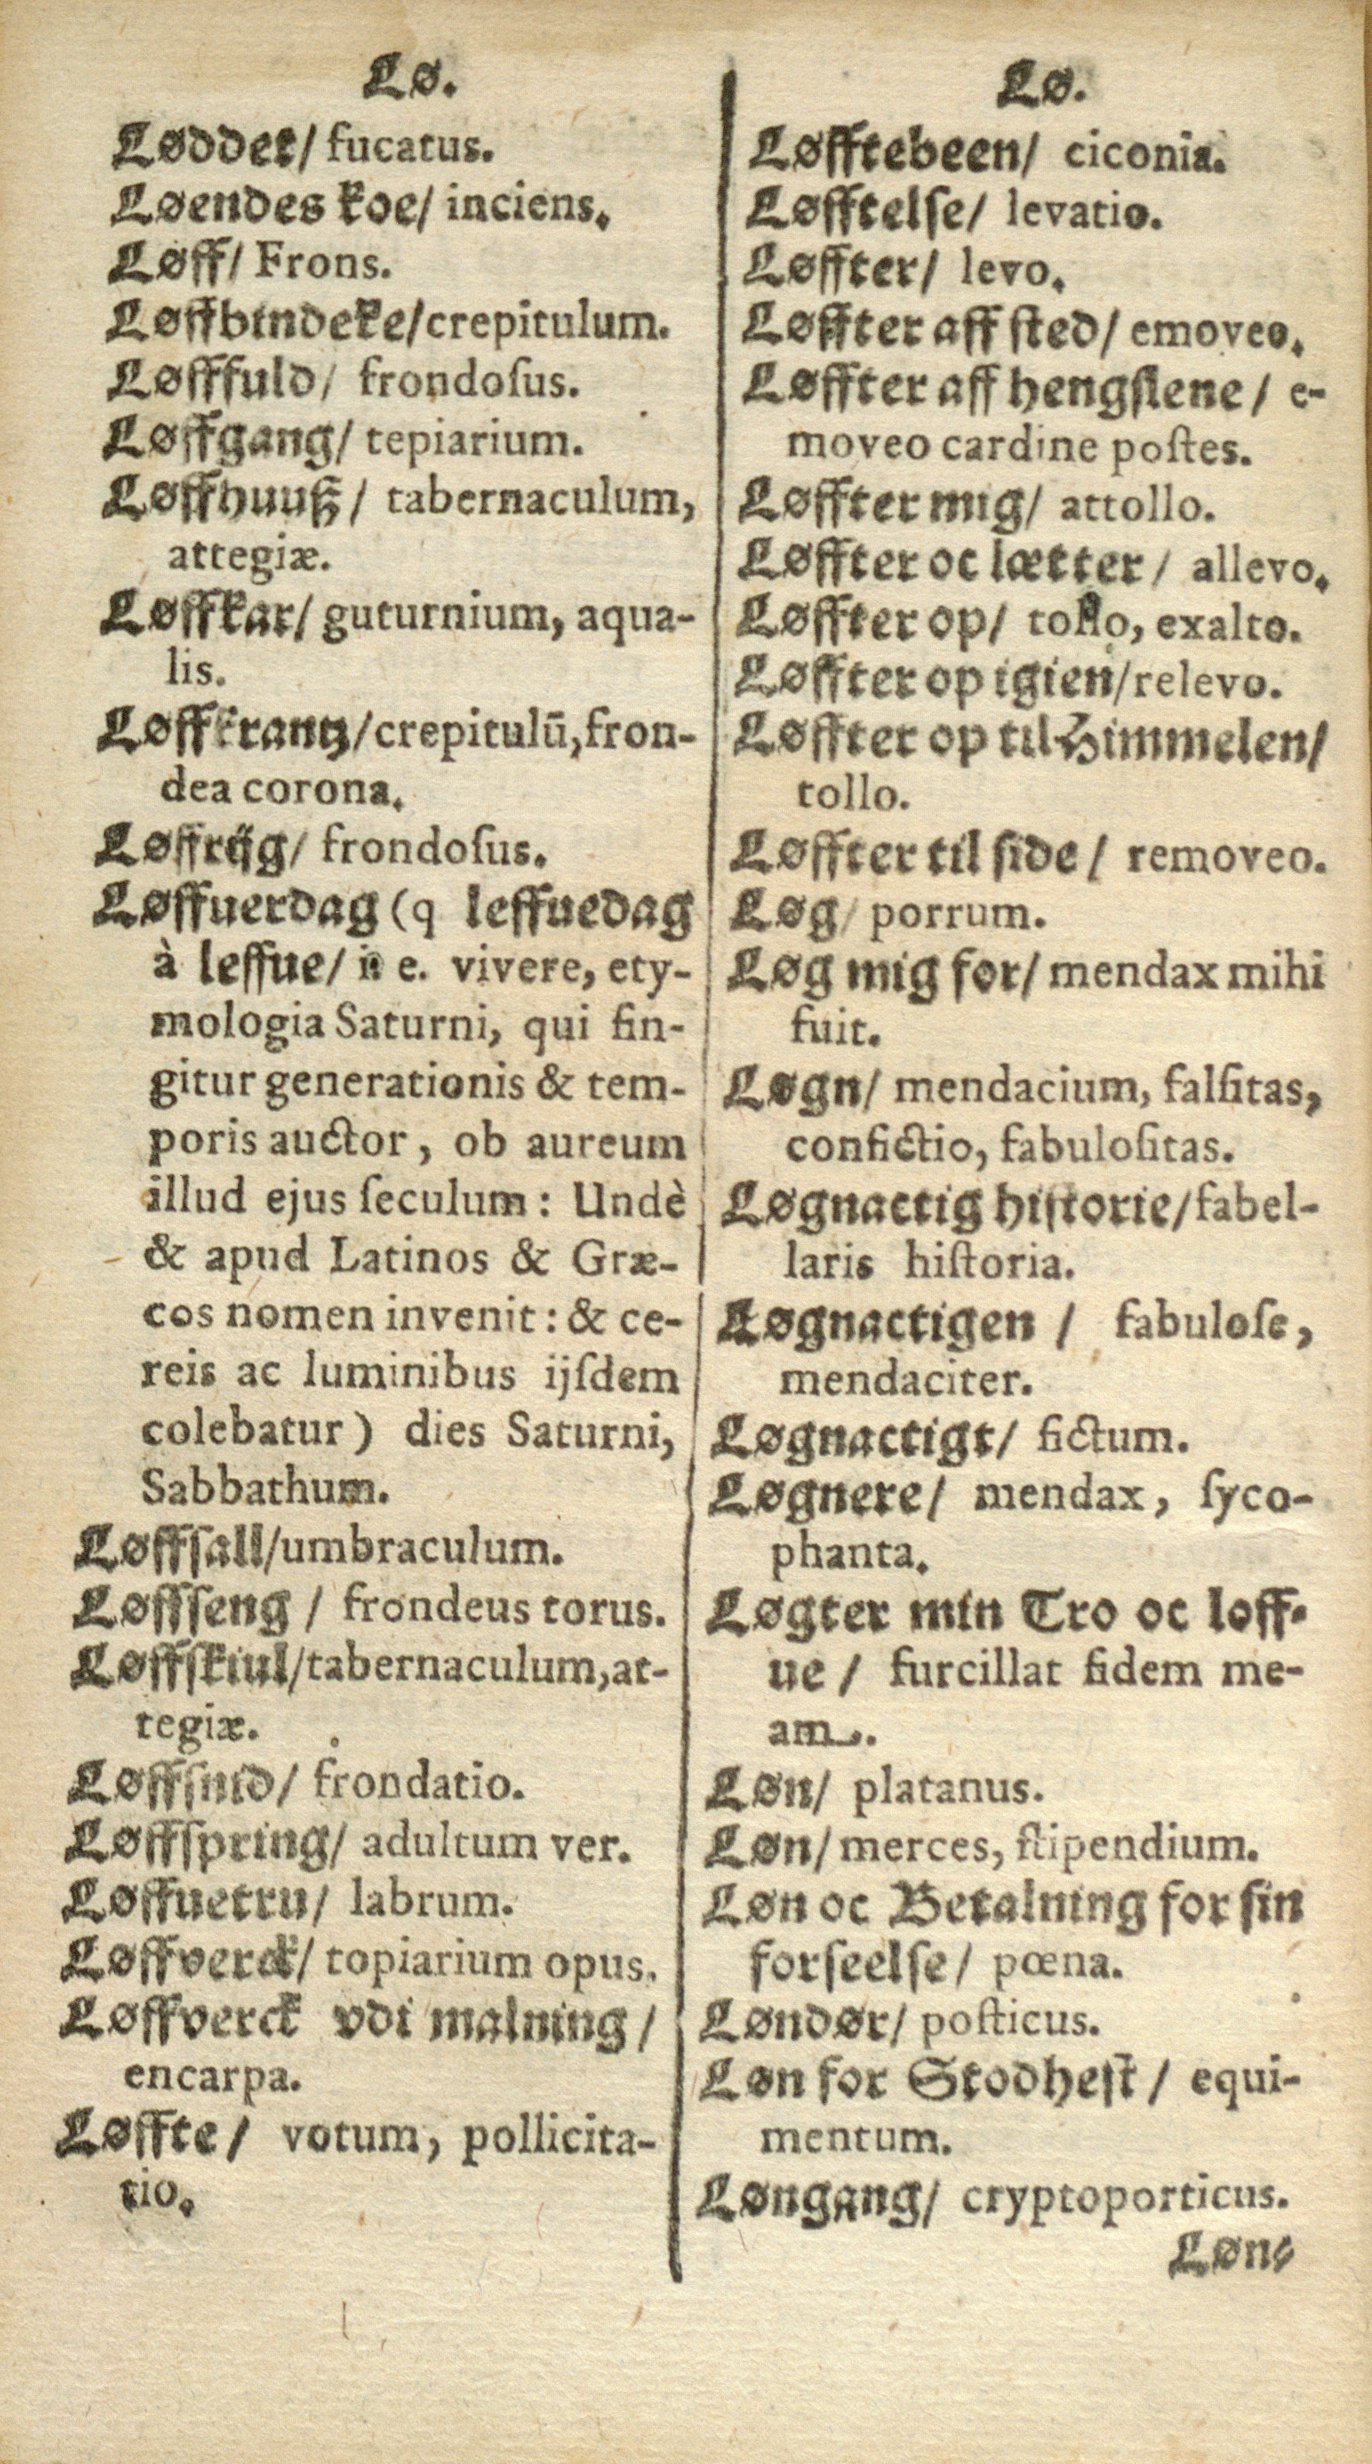 Lø.
Løddet/ fucatus.
Løendes koe/ inciens.
Løff/ Frons.
Løffbindeke/crepitulum.
Løfffuld/ frondoſus.
Løffgang/ tepiarium.
Løffhuuß/ tabernaculum,
attegiæ.
Løffkar/ guturnium, aqua-
lis.
Løffkrantz/crepitulū,fron-
dea corona.
Løffrijg/ frondoſus.
Løffuerdag (q leffuedag
à leffue/ i e. vivere, ety-
mologia Saturni, qui fin-
gitur generationis & tem-
poris auctor, ob aureum
illud ejus ſeculum: Undè
& apud Latinos & Græ-
cos nomen invenit: & ce-
reis ac luminibus ijſdem
colebatur) dies Saturni,
Sabbathum.
Løffſall/umbraculum.
Løffſeng / frondeus torus.
Løffſkiul/tabernaculum,at-
tegiæ.
Løffſnid/ frondatio.
Løffſpring/ adultum ver.
Løffuetru/ labrum.
Løffverck/ topiarium opus.
Løffverck vdi malning/
encarpa.
Løffte/ votum, pollicita-
tio.
Lø.
Løfftebeen/ ciconia.
Løfftelſe/ levatio.
Løffter/ levo.
Løffter aff ſted/ emoveo.
Løffter aff hengſlene/ e-
moveo cardine poſtes.
Løffter mig/ attollo.
Løffter oc lætter/ allevo.
Løffter op/ tollo, exalto.
Løffter op igien/relevo.
Løffter op til Himmelen/
tollo.
Løffter til ſide/ removeo.
Løg/ porrum.
Løg mig for/ mendax mihi
fuit.
Løgn/ mendacium, falſitas,
confictio, fabuloſitas.
Løgnactig hiſtorie/fabel-
laris hiſtoria.
Løgnactigen / fabuloſe,
mendaciter.
Løgnactigt/ fictum.
Løgnere/ mendax, ſyco-
phanta.
Løgter min Tro oc loff-
ue / furcillat fidem me-
am.
Løn/ platanus.
Løn/ merces, ſtipendium.
Løn oc Betalning for ſin
forſeelſe/ pœna.
Løndør/ poſticus.
Løn for Stodheſt / equi-
mentum.
Løngang/ cryptoporticus.
Løn-